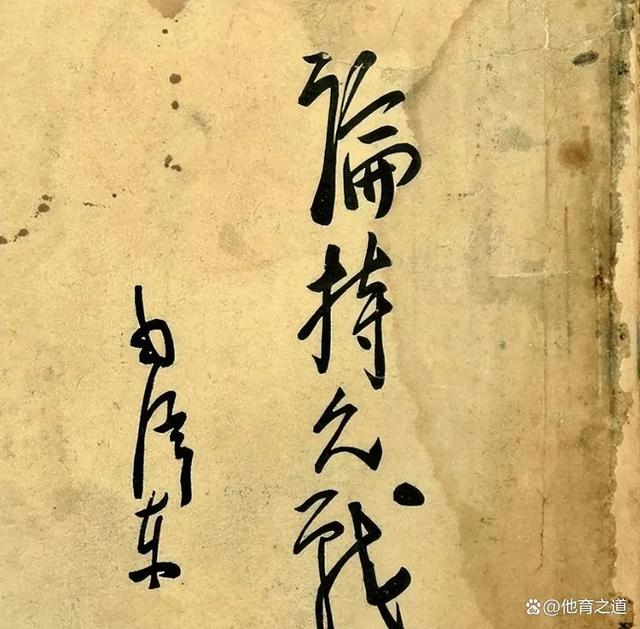 論持久戰
毛澤东
@他育之道